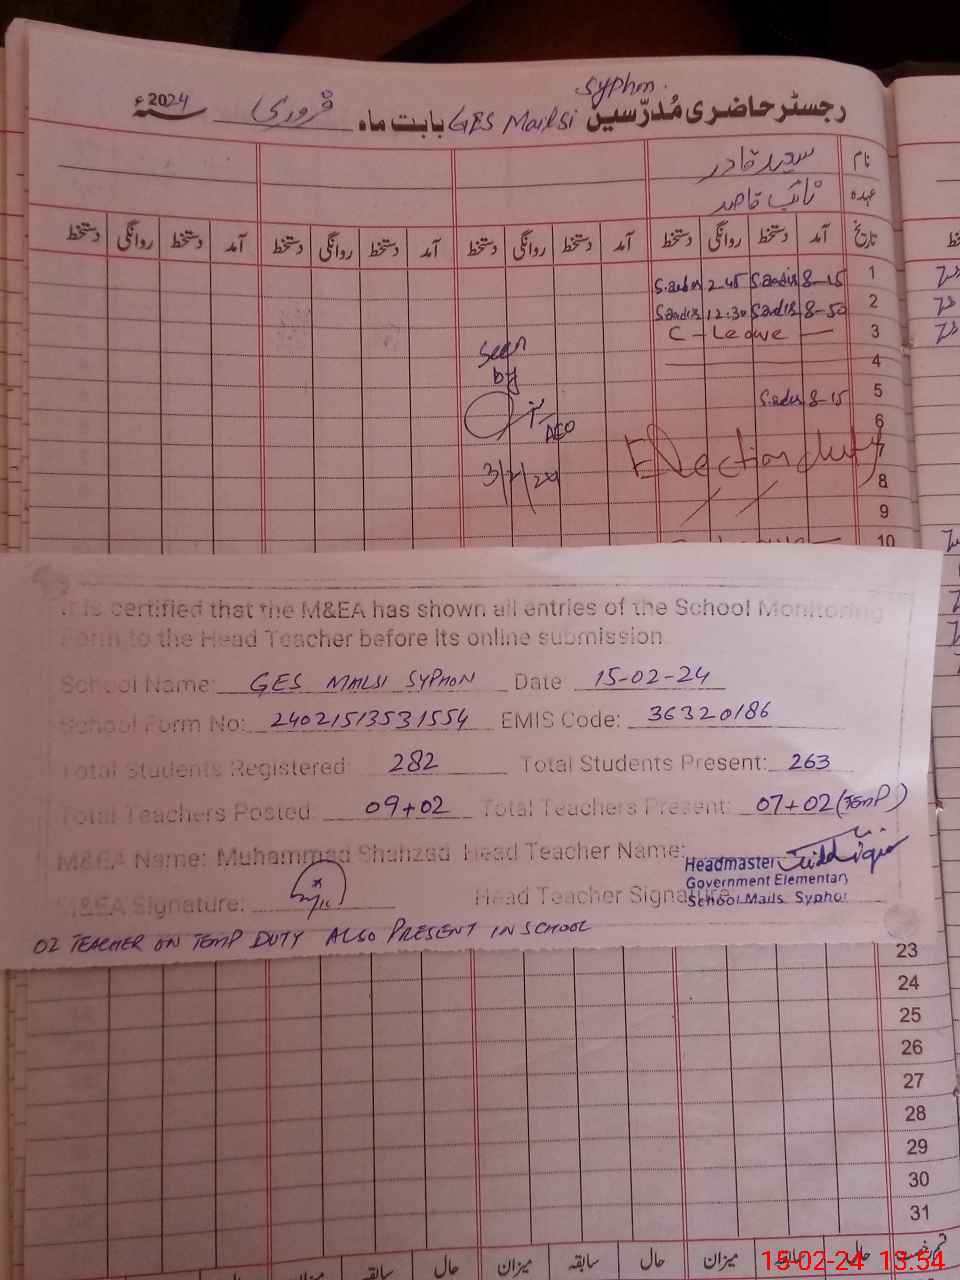 Syphon.
رجسٹر حاضری مُدرّسین GES Mailsi بابت ماہ فروری سنہ 2024ء
نام سعید قادر
عہدہ نائب قاصد
تاریخ آمد دستخط روانگی دستخط آمد دستخط روانگی دستخط آمد دستخط روانگی دستخط آمد دستخط روانگی دستخط
1 8-15 2-45
2 8-50 12:30
3 C-Leave
4
5 8-15
6
7 Election duty
8
9
10
Seen
by
AEO
3/2/24
It is certified that the M&EA has shown all entries of the School Monitoring
Form to the Head Teacher before its online submission.
School Name: GES MAILSI SYPHON Date 15-02-24
School Form No: 24021513531554 EMIS Code: 36320186
Total Students Registered: 282 Total Students Present: 263
Total Teachers Posted: 09+02 Total Teachers Present: 07+02 (TEMP)
M&EA Name: Muhammad Shahzad Head Teacher Name:
Headmaster
Government Elementary
School Mails Syphon
M&EA Signature: Head Teacher Signature
02 TEACHER ON TEMP DUTY ALSO PRESENT IN SCHOOL
23
24
25
26
27
28
29
30
31
حال سابقہ میزان حال سابقہ میزان حال سابقہ میزان حال
15-02-24 13:54